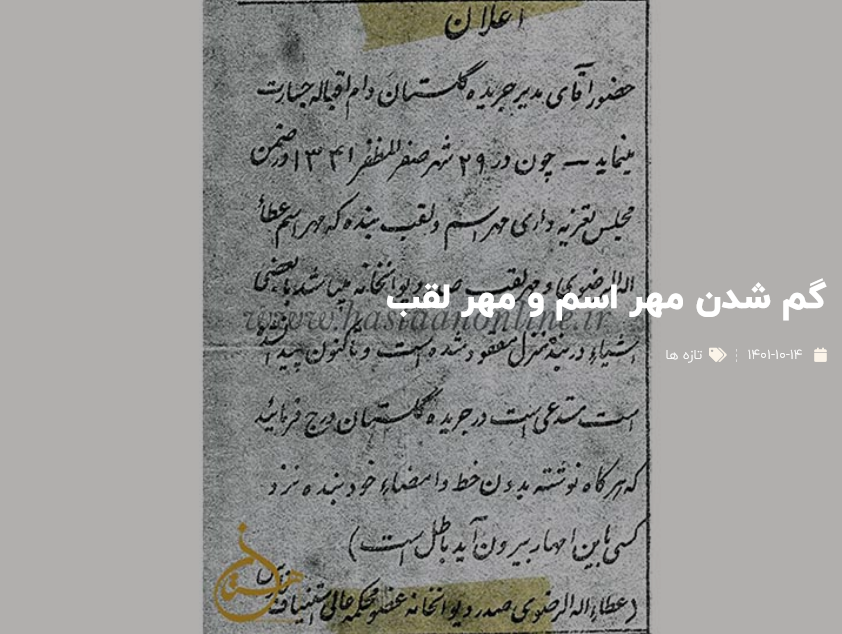 اعلان
حضور آقای مدیر جریده گلستان دام اقباله جسارت
مینماید — چون در ۲۹ شهر صفر المظفر ۱۳۴۱ در ضمن
مجلس تعزیه داری مهر اسم و لقب بنده که مهر اسم عطاء
الله الرضوی و مهر لقب صدر دیوانخانه میباشد با بعضی
گم شدن مهر اسم و مهر لقب
www.hastaanonline.ir
اشیاء در بنده منزل مفقود شده است و تاکنون پیدا نشده
۱۴۰۱-۱۰-۱۴ تازه ها
است مستدعی است در جریده گلستان درج فرمائید
که هر گاه نوشته بدون خط و امضاء خود بنده نزد
کسی باین امهار بیرون آید باطل است)
(عطاء الله الرضوی صدر دیوانخانه عضو محکمه عالی استیناف فارس